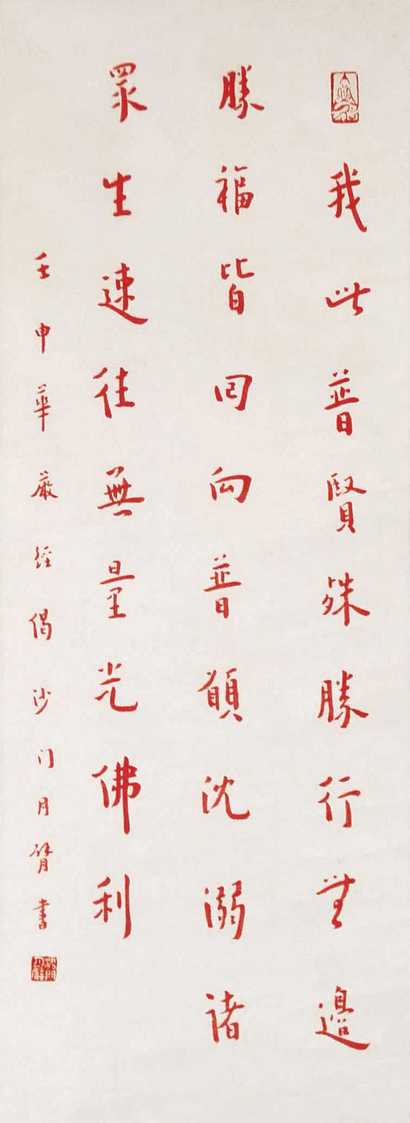 我此普賢殊勝行無邊
勝福皆回向普願沈溺諸
眾生速往無量光佛利
壬申華嚴經偈沙門月臂書